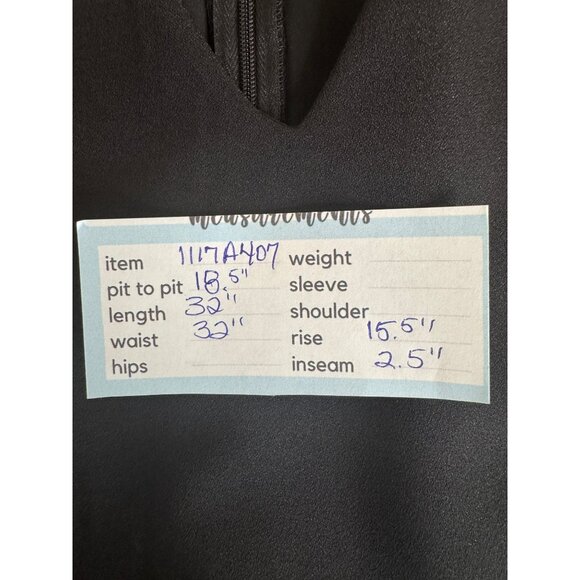 measurements
item 1117A407 weight
pit to pit 18.5" sleeve
length 32" shoulder
waist 32" rise 15.5"
hips inseam 2.5"